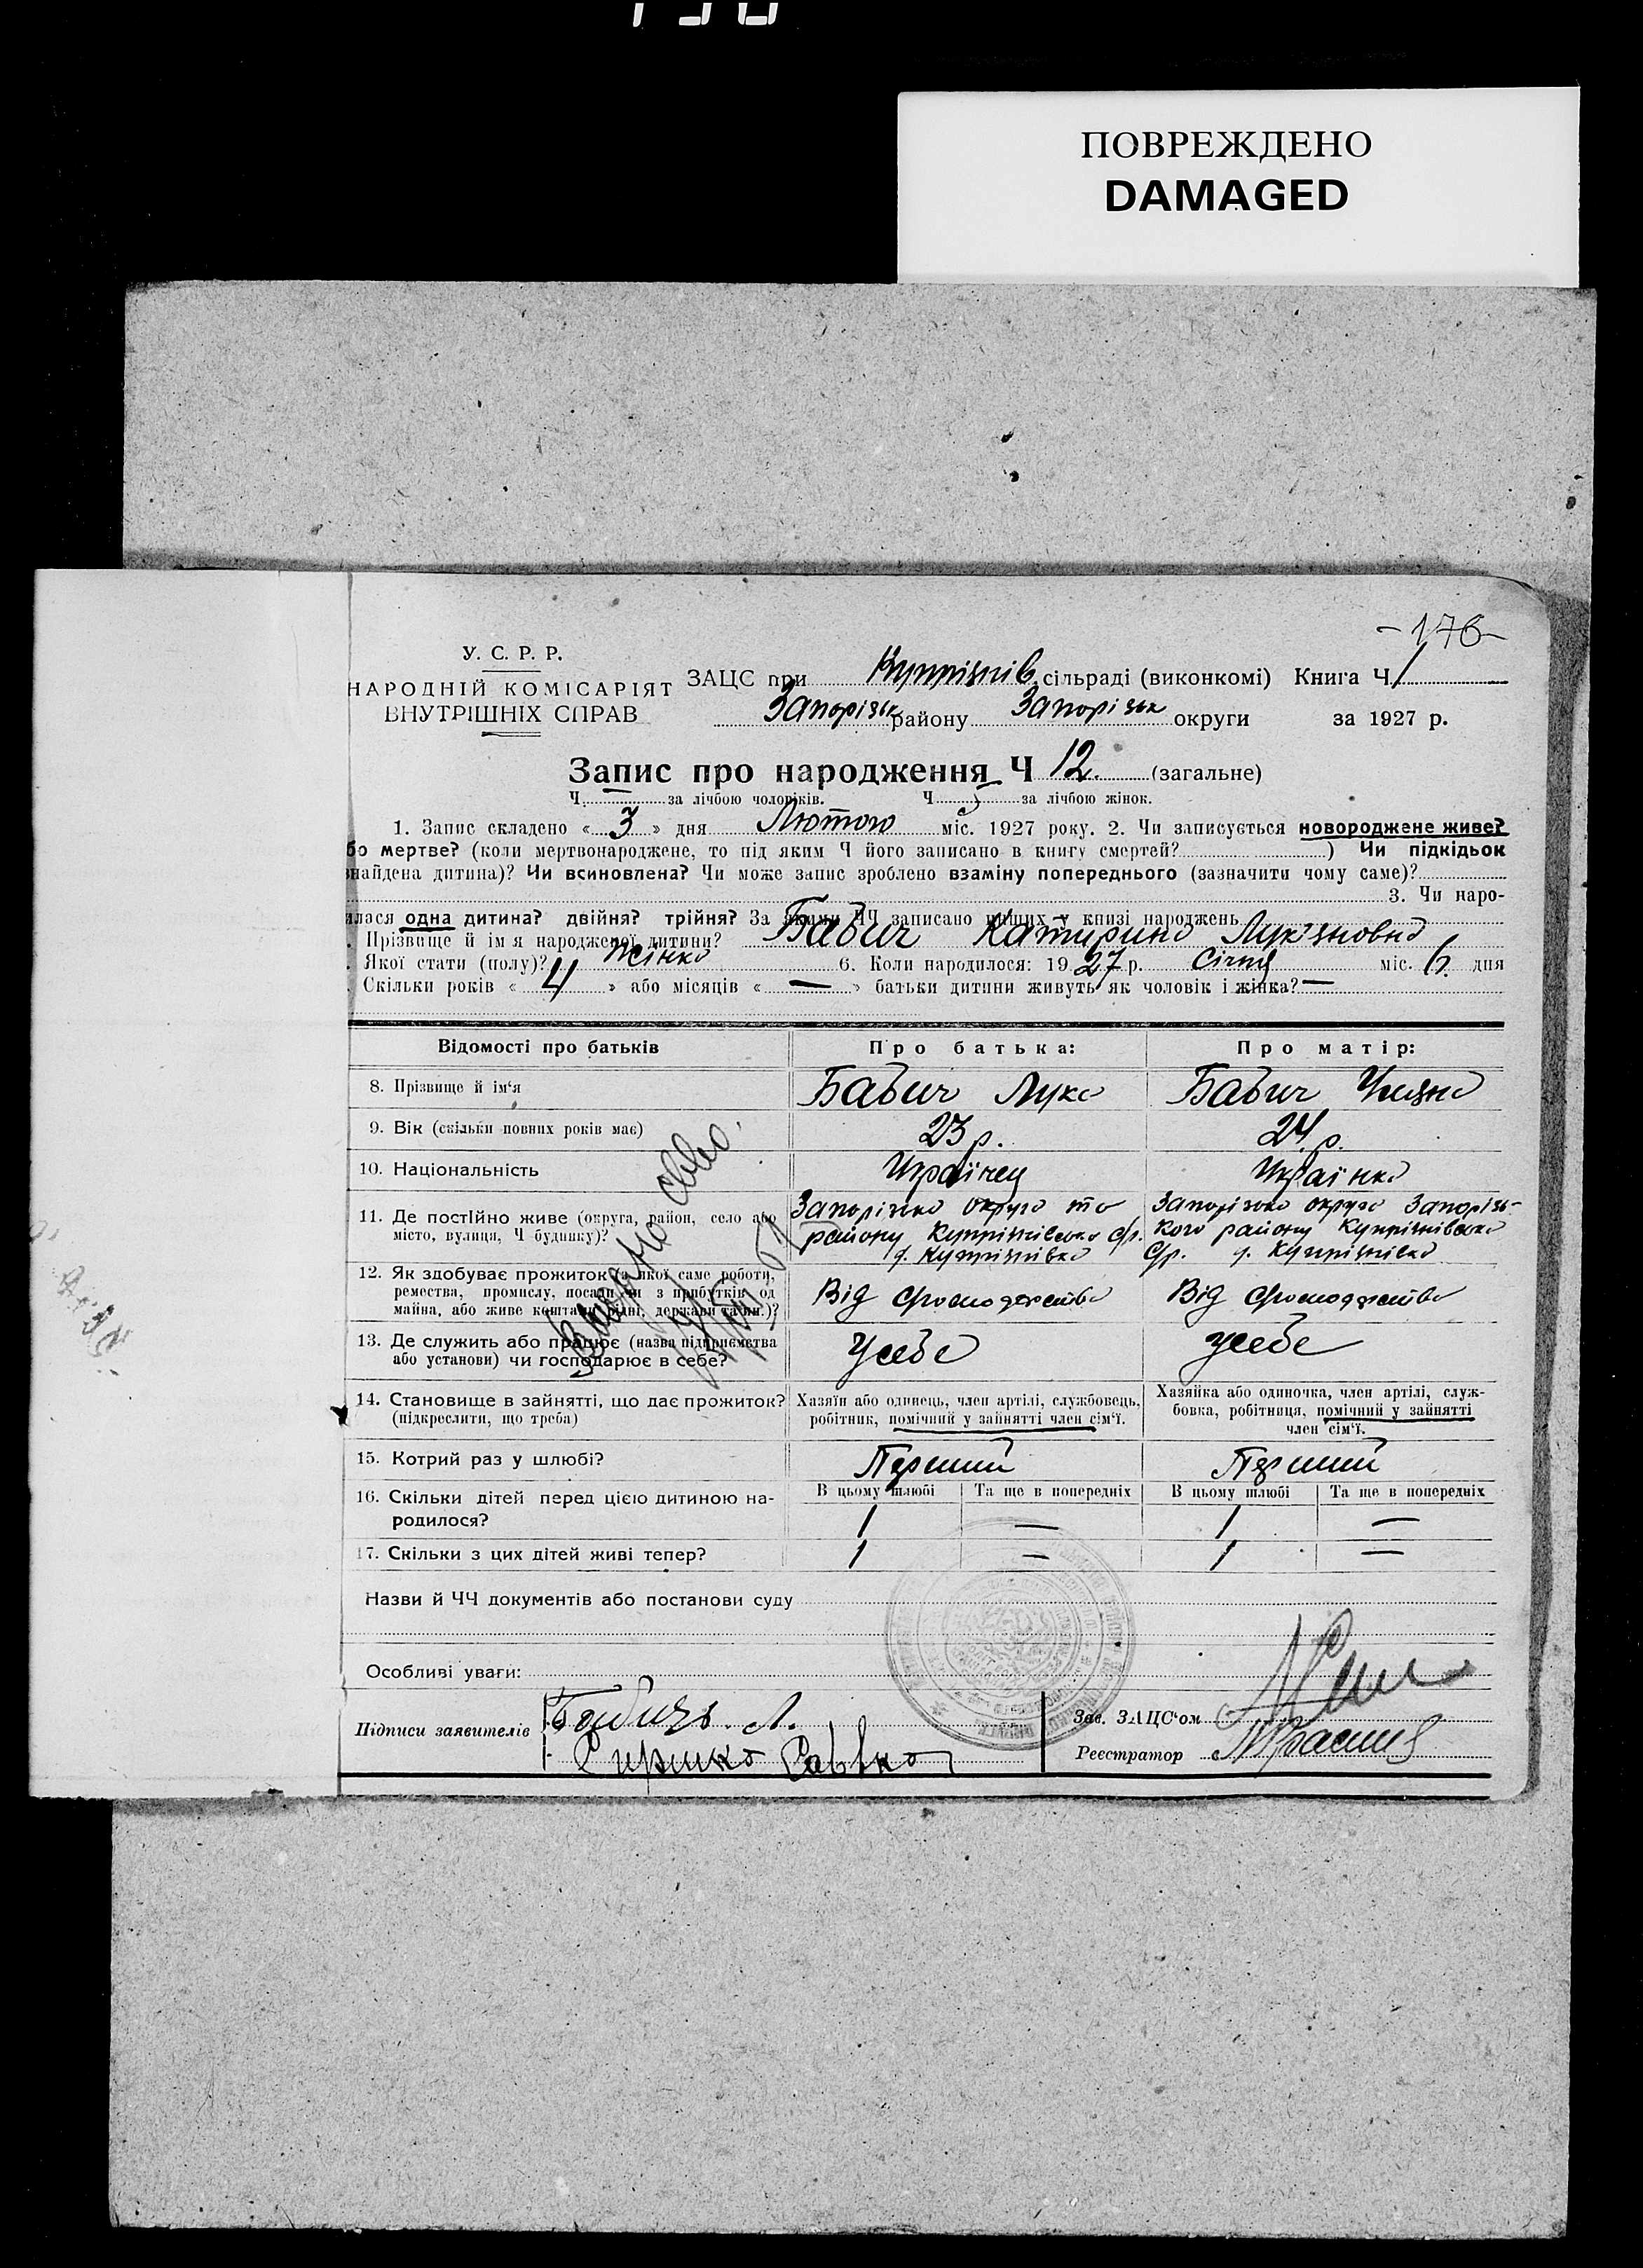 ПОВРЕЖДЕНО
DAMAGED
-176-
У. С. Р. Р.
НАРОДНІЙ КОМІСАРІЯТ
ВНУТРІШНІХ СПРАВ
ЗАЦС при Купріянів сільраді (виконкомі) Книга Ч 1
Запорізьк району Запорізьк округи за 1927 р.
Запис про народження Ч 12. (загальне)
Ч за лічбою чоловіків. Ч 5 за лічбою жінок.
1. Запис складено « 3 » дня Лютого міс. 1927 року. 2. Чи записується новороджене живе?
бо мертве? (коли мертвонароджене, то під яким Ч його записано в книгу смертей? ) Чи підкідьок
знайдена дитина)? Чи всиновлена? Чи може запис зроблено взаміну попереднього (зазначити чому саме)?
3. Чи наро-
илася одна дитина? двійня? трійня? За якими ЧЧ записано инших у книзі народжень
. Прізвище й ім я народженої дитини? Бабич Катирина Лук'яновна
. Якої стати (полу)? Жінка 6. Коли народилося: 1927 р. Січня міс. 6. дня
. Скільки років « 4 » або місяців « — » батьки дитини живуть як чоловік і жінка? —
Відомості про батьків Про батька: Про матір:
8. Прізвище й ім'я Бабич Лука Бабич
9. Вік (скільки повних років має) 23 р. 24 р.
10. Національність Українец Українка
11. Де постійно живе (округа, район, село або місто, вулиця, Ч будинку)?
Запорізька округа та
району Купріянівська с/р.
с. Купріянівка
Запорізька округа Запорізь-
кого району Купріянівська
С/р. с. Купріянівка
12. Як здобуває прожиток (з якої саме роботи,
ремества, промислу, посади чи з прибутків од
майна, або живе коштами рідні, держави та ин.)?
Від с господарства Від с господарства
13. Де служить або працює (назва підприємства
або установи) чи господарює в себе?
Усебе Усебе
14. Становище в зайнятті, що дає прожиток?
(підкреслити, що треба)
Хазяїн або одинець, член артілі, службовець,
робітник, помічний у зайнятті член сім'ї.
Хазяйка або одиночка, член артілі, служ-
бовка, робітниця, помічний у зайнятті
член сім'ї.
15. Котрий раз у шлюбі? Перший Перший
В цьому шлюбі Та ще в попередніх В цьому шлюбі Та ще в попередніх
16. Скільки дітей перед цією дитиною на-
родилося? 1 — 1 —
17. Скільки з цих дітей живі тепер? 1 — 1 —
Назви й ЧЧ документів або постанови суду
Особливі уваги:
Підписи заявителів Бабичъ. Л.
Зав. ЗАЦС'ом
Реєстратор